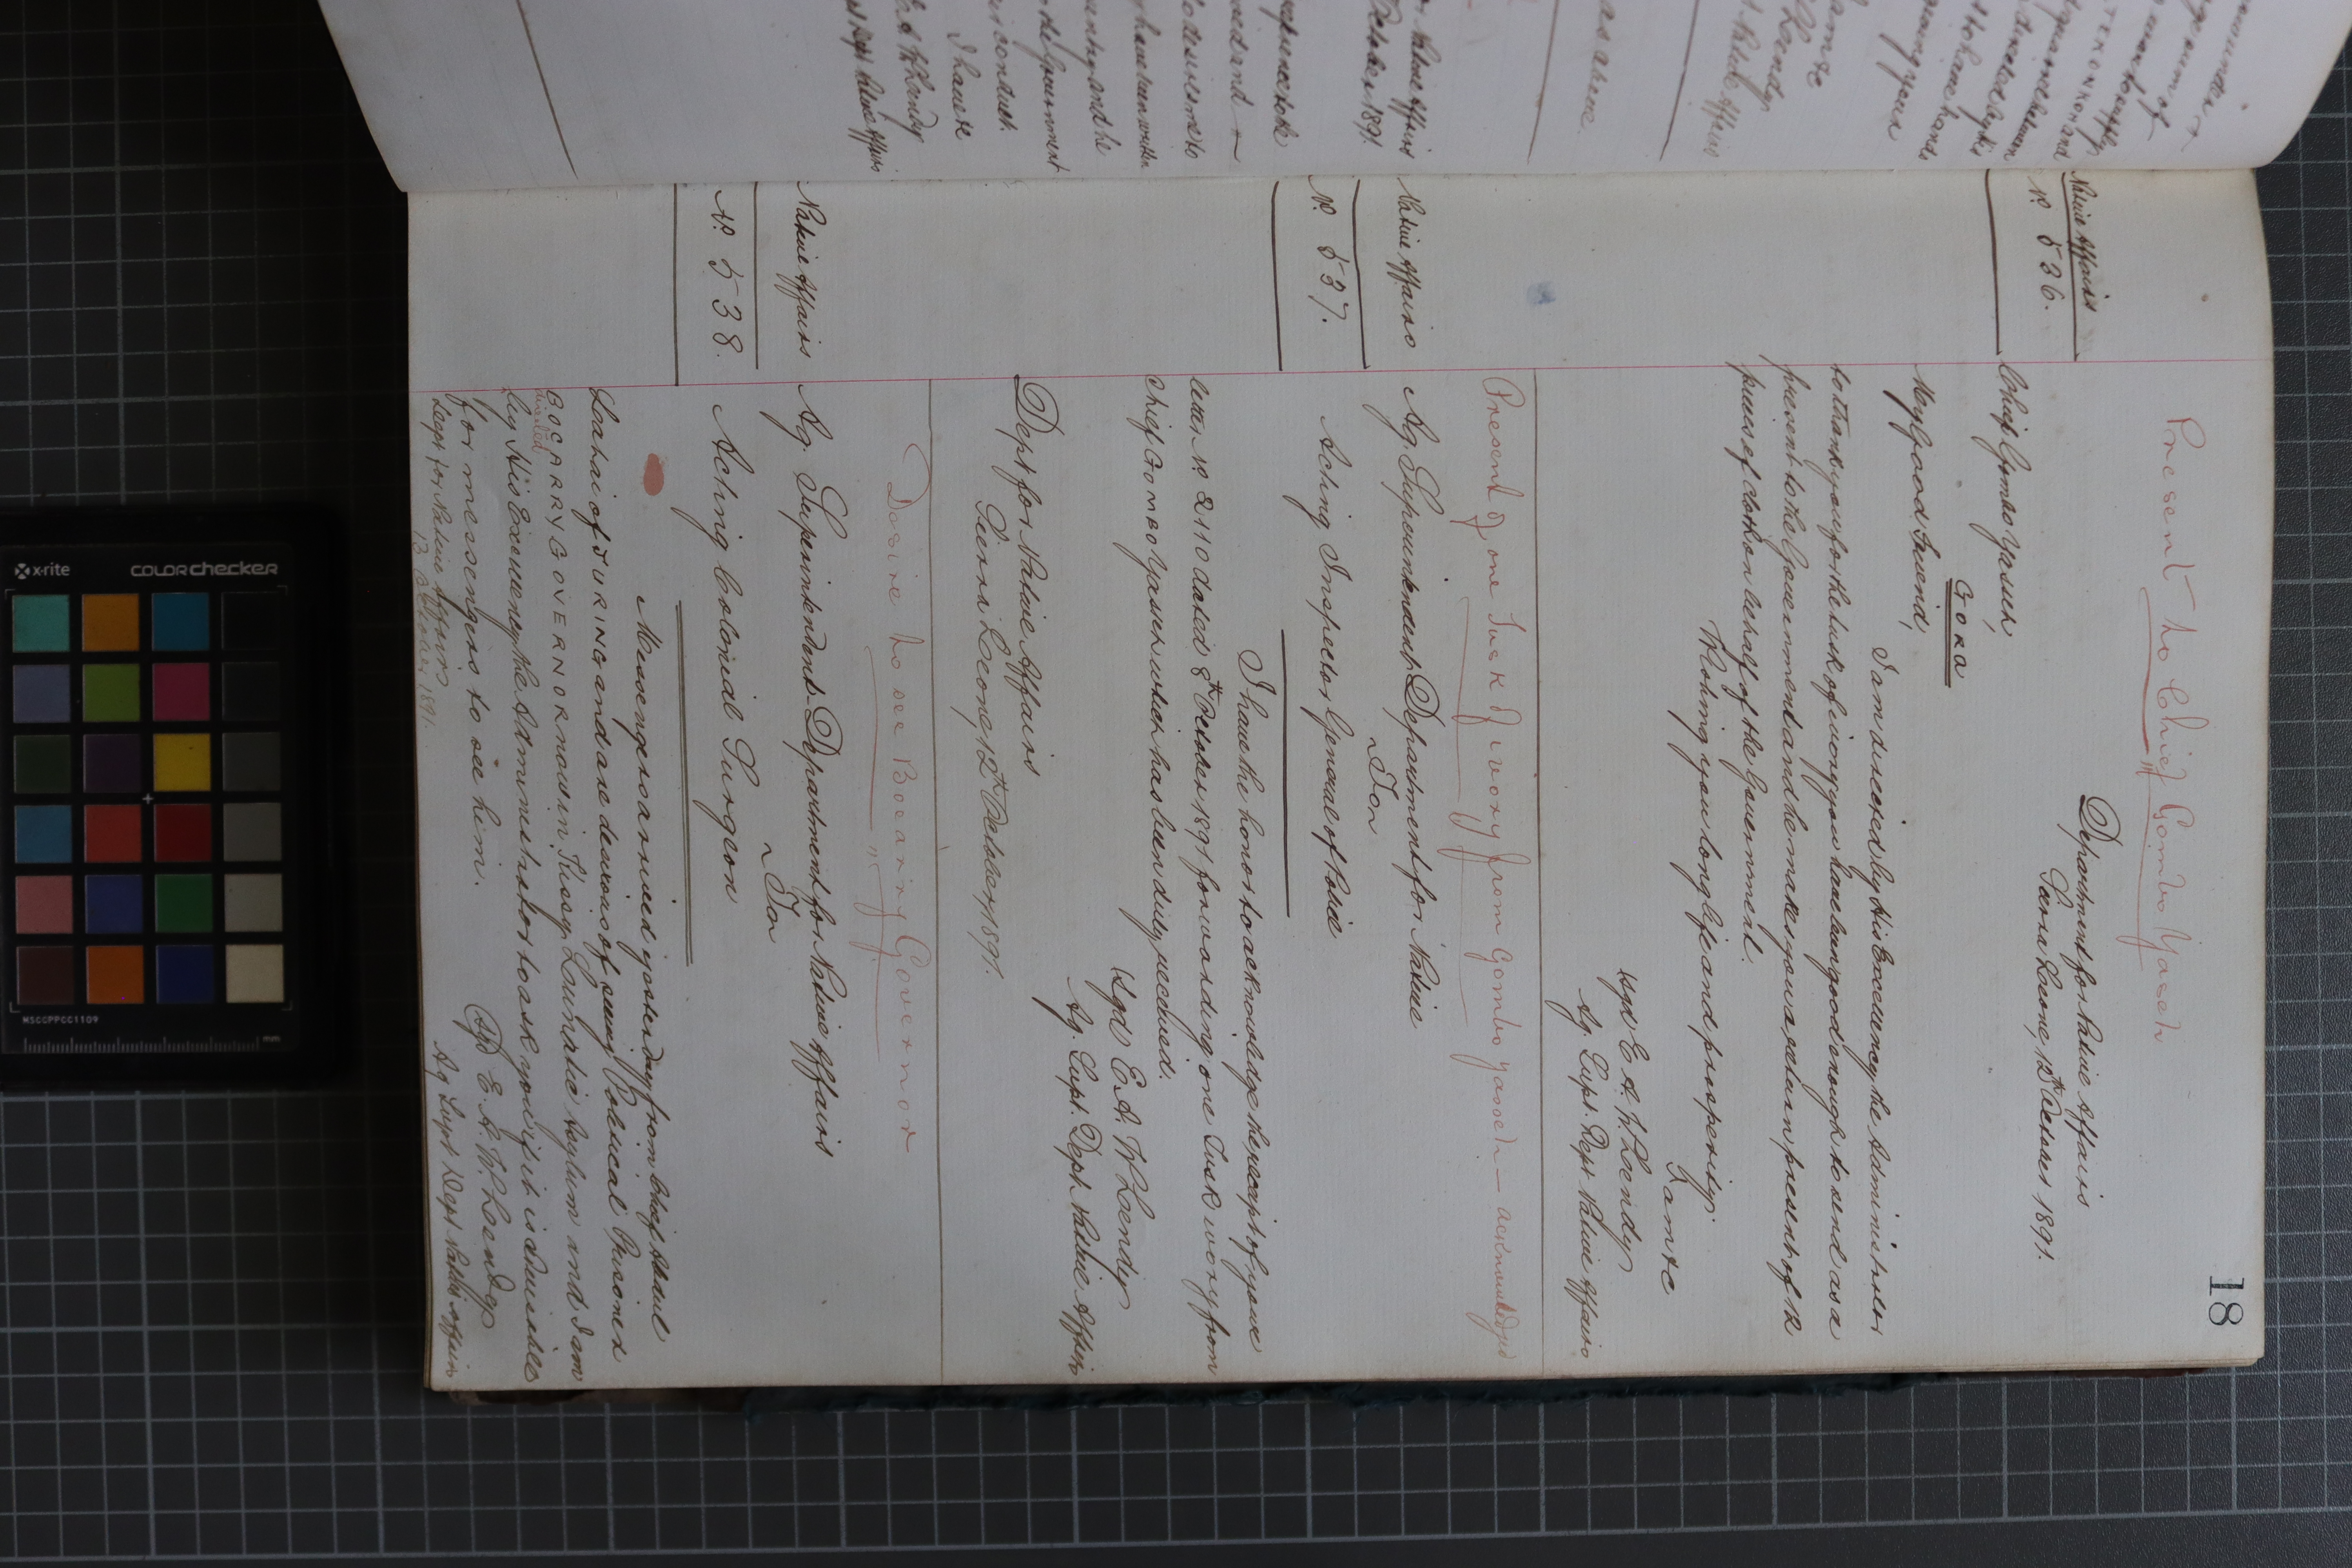 18
Present to Chief Gombo Yaseh
Native Affairs
No. 536.
Department for Native Affairs
Sierra Leone, 12th October 1891.
Chief Gombo Yaseh,
GORA
My Good Friend,
I am directed by His Excellency the Administrator
to thank you for the tusk of ivory you have been good enough to send as a
present to the Government and he makes you a return present of 12
pieces of cloth on behalf of the Government.
Wishing you long life and prosperity.
I am &c
Sgd E. A. W. Lendy
Ag. Supt. Dept. Native Affairs
Present of one Tusk of ivory from Gombo Yaseh — acknowledged
Native Affairs
No. 537.
Ag. Superintendent Department for Native
To
Acting Inspector General of Police
I have the honor to acknowledge the receipt of your
letter No. 2110 dated 8th October 1891 forwarding one Tusk ivory from
Chief GOMBO Yaseh which has been duly received.
Sgd E. A. W. Lendy
Ag. Supt. Dept. Native Affairs
Dept for Native Affairs
Sierra Leone, 12th October 1891.
Desire to see Bocarry Governor
Native Affairs
No. 538.
Ag. Superintendent Department for Native Affairs
To
Acting Colonial Surgeon
Messengers arrived yesterday from Chief Abdul
Lahai of JURING and are desirous of seeing Political Prisoner
BOCARRY GOVERNOR now in Kissy Lunatic Asylum and I am
directed
by His Excellency the Administrator to ask you if it is advisable
for messengers to see him.
Sgd E. A. W. Lendy
Ag Supt Dept Native Affairs
Dept for Native Affairs
13 October 1891.
x-rite
COLORchecker
MSCCPPCC1109
mm